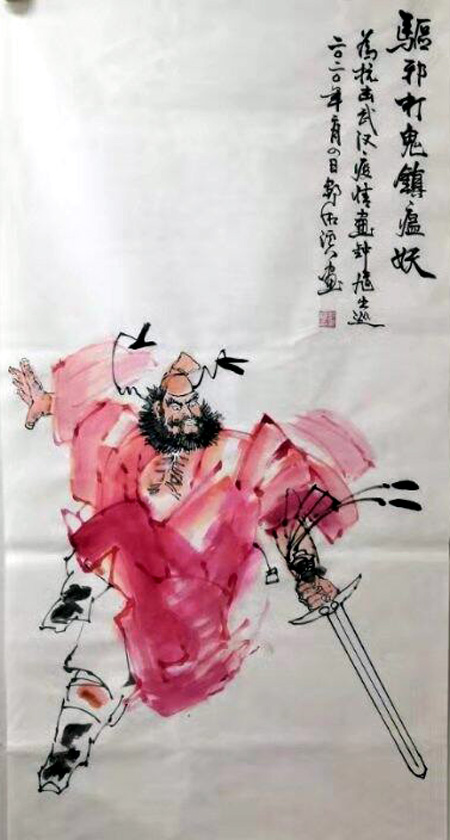 驅邪打鬼鎮瘟妖
為抗击武汉疫情畫钟馗出巡
二〇二〇年二月日畫